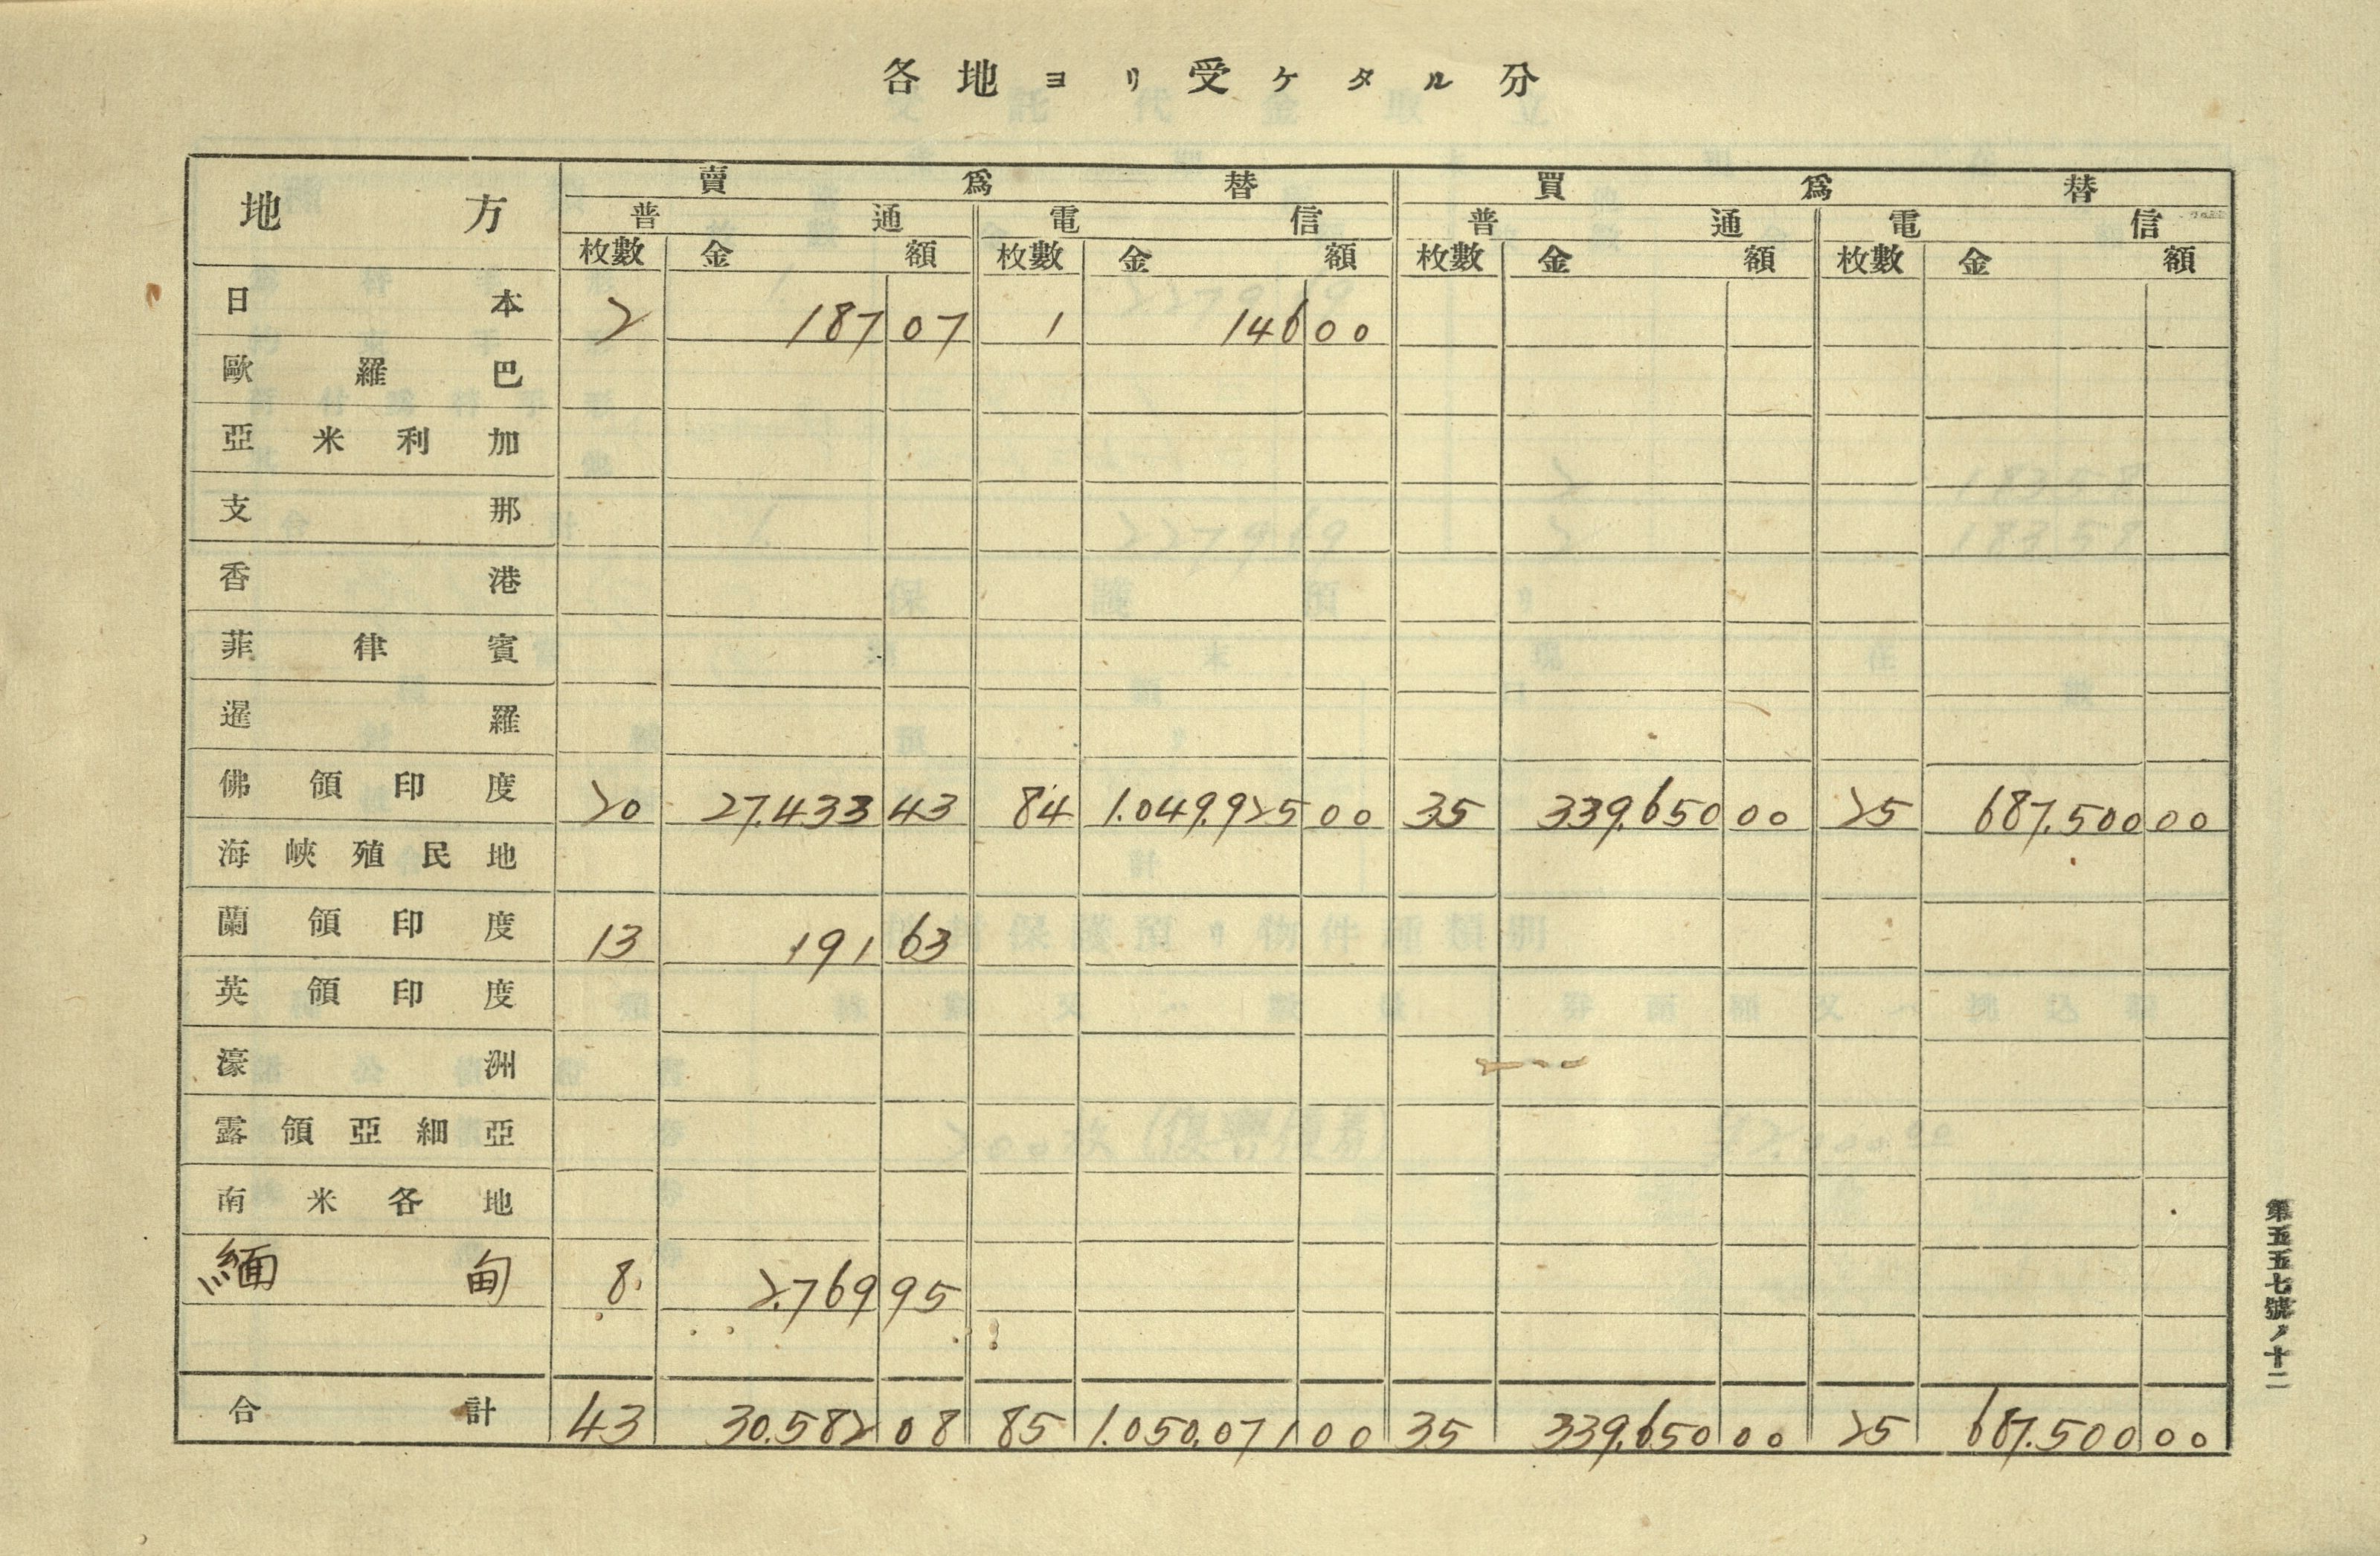 各地ヨリ受ケタル分
地方 賣爲替 買爲替
普通 電信 普通 電信
枚數 金額 枚數 金額 枚數 金額 枚數 金額
日本 2 187 07 1 146 00
歐羅巴
亞米利加
支那
香港
菲律賓
暹羅
佛領印度 20 27.433 43 84 1.049.925 00 35 339.650 00 25 687.500 00
海峽殖民地
蘭領印度 13 191 63
英領印度
濠洲
露領亞細亞
南米各地
緬甸 8 2.769 95
合計 43 30.582 08 85 1.050.071 00 35 339.650 00 25 687.500 00
第五五七號ノ十二